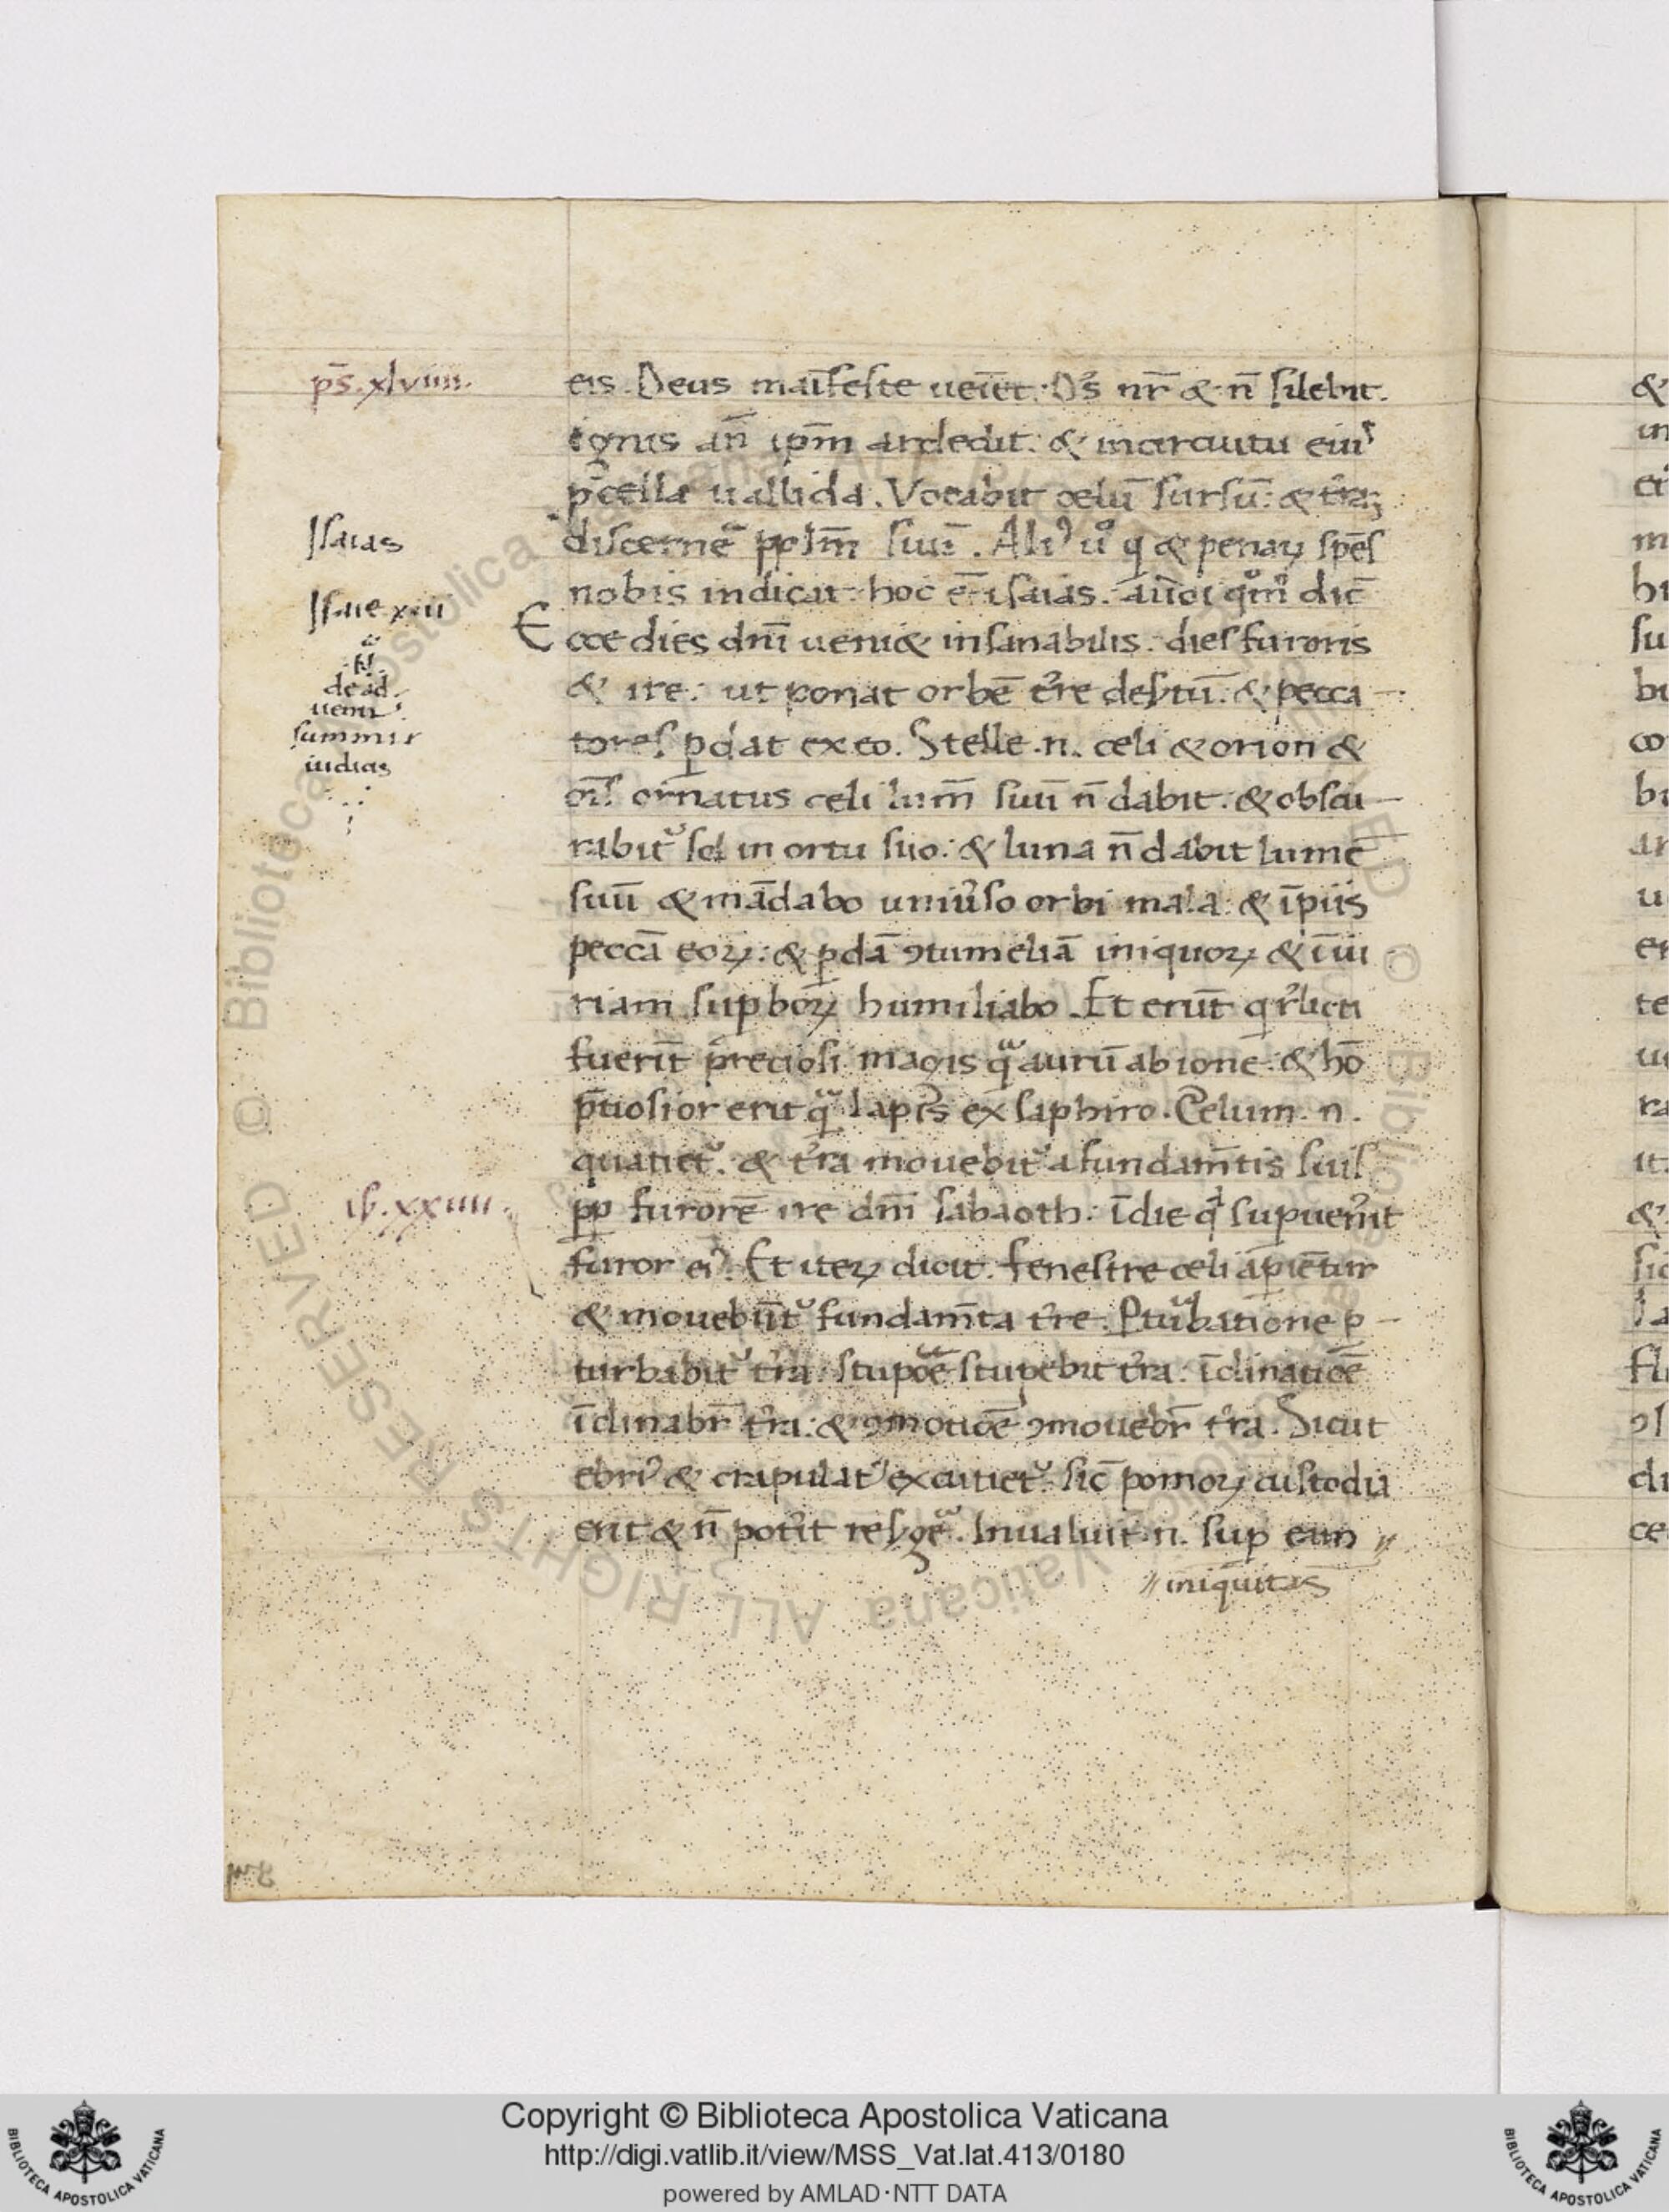 p̄s. xlviiii.
eis. Deus maīfeste ueīet. D's nr̄ & n̄ silebit.
ignis an̄ ip̄m ardebit. & incircuitu eiuˢ
p̄cella uallida. Vocabit celū sursū. & tr̄aʒ
Isaias
discerne pp̄lm̄ suū. Aliꝰ u° q̇ & penaꝝ sp̄es
nobis indicat hoc ē isaias. aūdi qm̄ dic̄
Isaie xiii
Ecce dies dn̄i ueni& insanabilis. dies furoris
& ire. ut ponat orbē tr̄re deſtū. & pecca-
dead
uentꝰ
summi
iudicis
tores ꝑdat ex eo. Stelle .n. celi & orion &
oīs ornatus celi lum̄ suū n̄ dabit. & obscu-
rabit᷑ sol in ortu suo. & luna n̄ dabit lumē
suū & mādabo uniuso orbi mala. & īpiis
peccā eoꝝ. & ꝑdā ꝯtumeliā iniquoꝝ & īiu
riam suꝑboꝝ humiliabo. Et erūt q̇ rlicti
fuerīt precioſi magis qᷓ aurū ab ione. & hō
p̄tiosior erit qᷓ lapis ex saphiro. Celum .n.
quatiet᷑. & tr̄a mouebit᷑ a fundam̄tis suis
iſ. xxiiii.
pp furorē ire dn̄i sabaoth. īdie q̇ suꝑuen̄it
furor eiꝰ. Et iteꝝ dicit. fenestre celi aꝑiētur
& mouebūt᷑ fundam̄ta tr̄re. Ꝑtubatione ꝑ-
turbabit᷑ tr̄a. stupoē stupebit tr̄a. īclinatiōe
īclinabr̄ tr̄a. & ꝯmotiōe ꝯmouebr̄ tr̄a. Sicut
ebriꝰ & crapulatꝰ excutiet᷑. sic̄ pomoꝝ custodia
erit & n̄ pot̄it resꝰgē. Inualuit .n. suꝑ eam //
// iniquitas
Copyright © Biblioteca Apostolica Vaticana
http://digi.vatlib.it/view/MSS_Vat.lat.413/0180
powered by AMLAD·NTT DATA